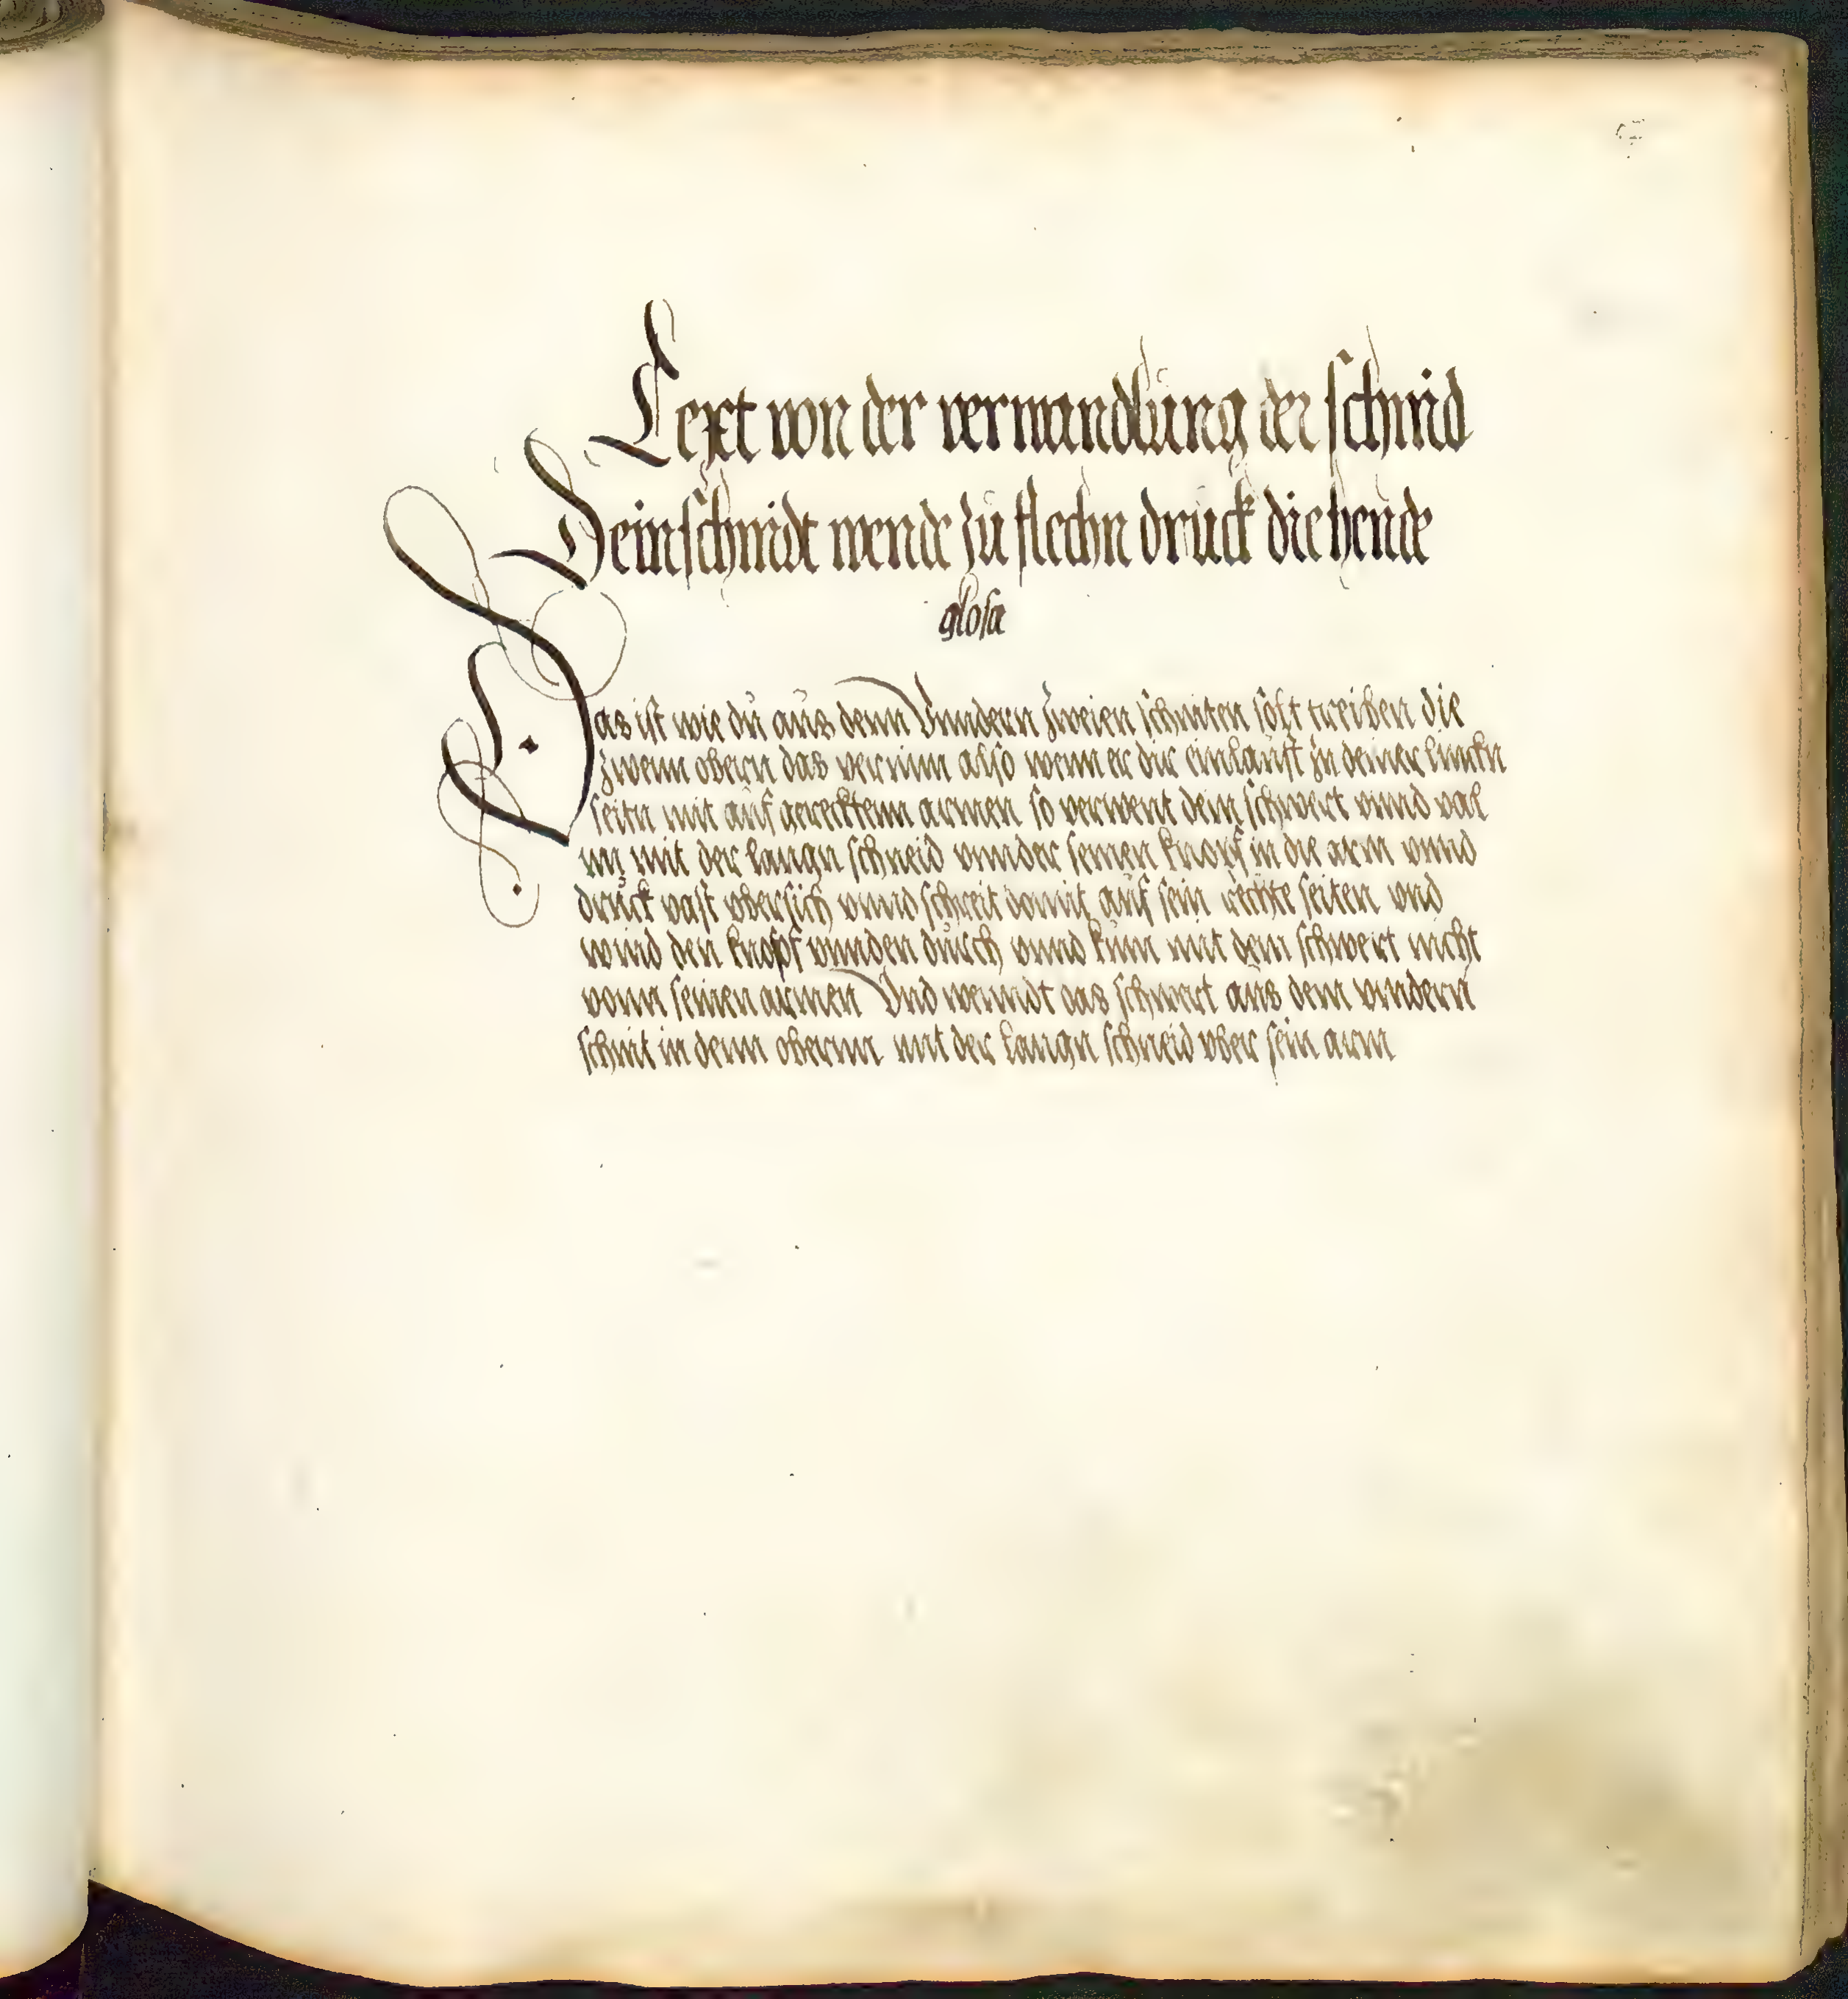 Text von der verwandlung der schnid
Dein schnidt wende zu flechn druck die hende
glosa
Das ist wie du aus denn Vnndern zweien schniten solt treiben die
zwenn obern das vernim also wenn er dir einlauft zu deiner linckn
seitn mit auf gerecktenn armen so verwent dein schwert vnnd val
im mit der langn schneid vnnder seinen knopf in die arm vnnd
druck vast vbersich vnnd schreit domit auf sein rechte seiten vnd
wind den knopf vnnden durch vnnd kum mit dem schwert nicht
vonn seinen armen Vnd wenndt das schwert aus dem vndern
schnit in denn obernn mit der langn schneid vber sein arm